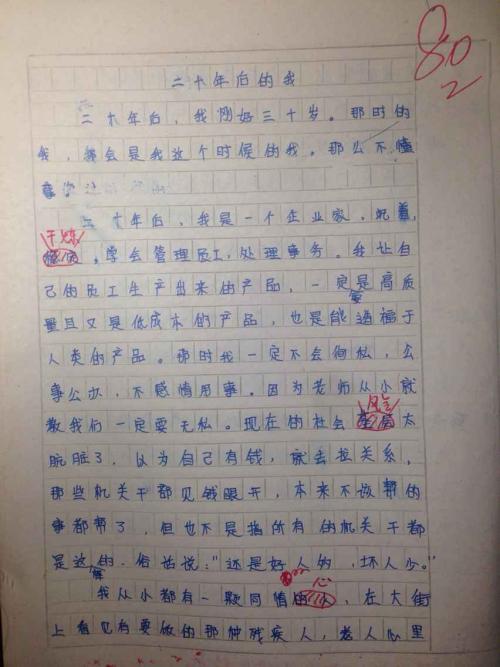 80
2
二十年后的我
二十年后，我刚好三十岁。那时的
我，会是我这个时候的我。那么不懂
事
二十年后，我是一个企业家，沉着，
干练。学会管理员工，处理事务。我让自
己的员工生产出来的产品，一定是高质
量且又是低成本的产品，也是能造福于
人类的产品。那时我一定不会徇私，公
事公办，不感情用事。因为老师从小就
教我们一定要无私。现在的社会风气太
肮脏了，以为自己有钱，就去拉关系，
那些机关干部见钱眼开，本来不该帮的
事都帮了，但也不是指所有的机关干都
是这的，俗话说："还是好人多，坏人少。"
我从小都有一颗同情心，在大街
上看见有要饭的那种残疾人，老人心里